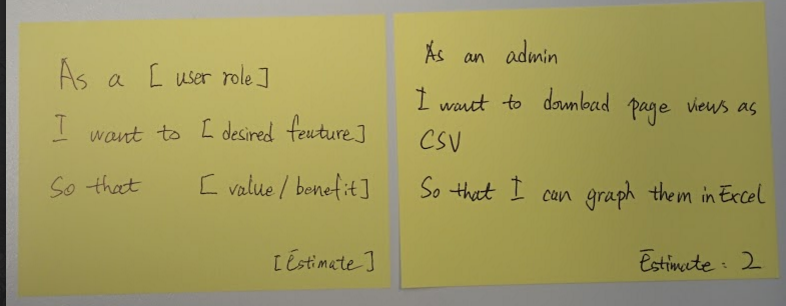 As a [user role]
I want to [desired feature]
So that [value/benefit]
[Estimate]
As an admin
I want to download page views as
CSV
So that I can graph them in Excel
Estimate: 2